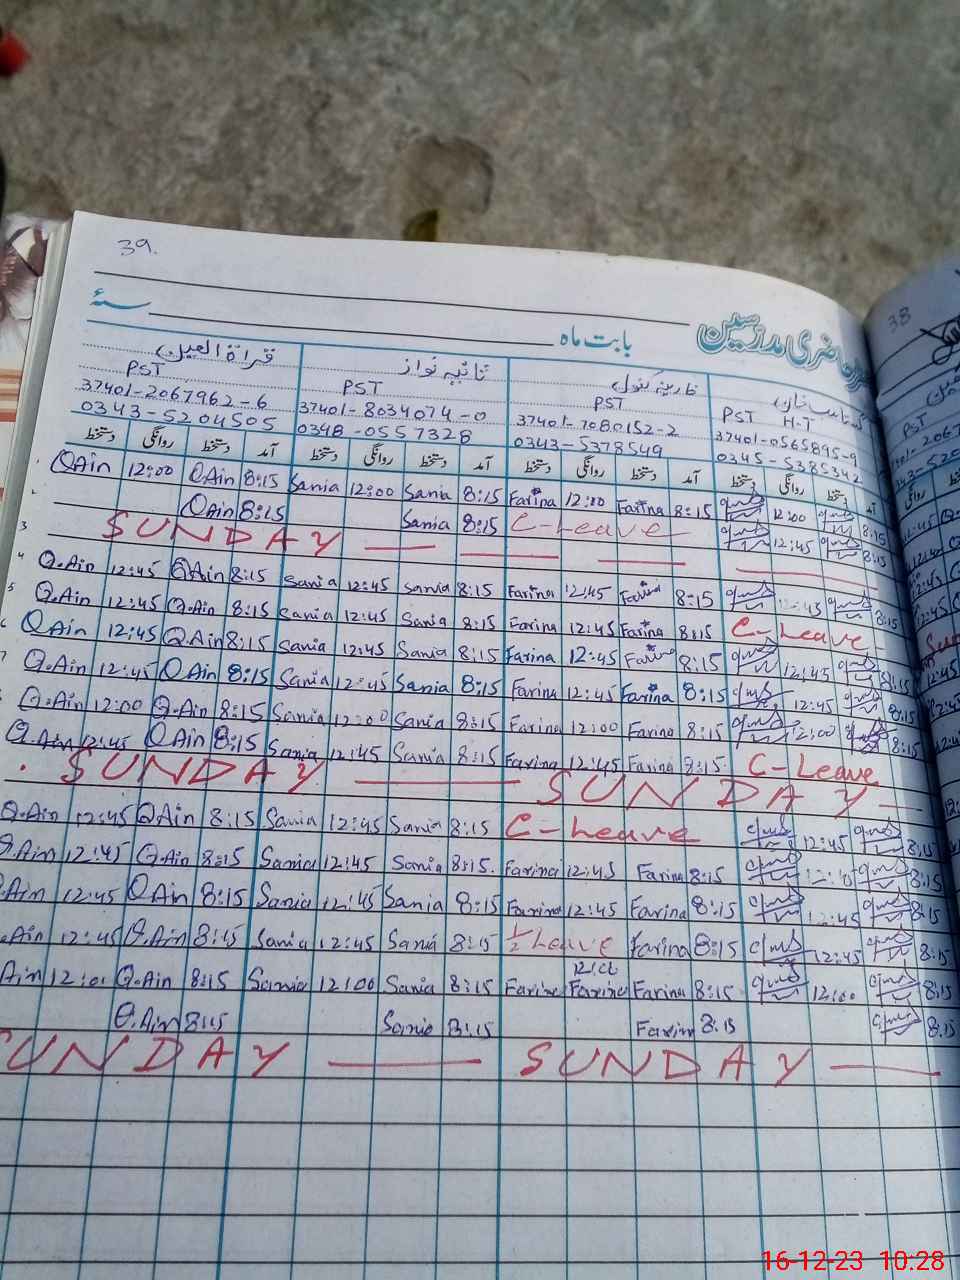 39.
38
حاضری مدرسین بابت ماہ سنہ
فارینہ کنول ثانیہ نواز قراۃ العین
PST H-T PST PST PST
37401-0565895-9 37401-7080152-2 37401-8034074-0 37401-2067962-6
0345-5385342 0343-5378549 0348-0557328 0343-5204505
آمد دستخط روانگی دستخط آمد دستخط روانگی دستخط آمد دستخط روانگی دستخط دستخط روانگی دستخط
QAin 12:00 QAin 8:15 Sania 12:00 Sania 8:15 Farina 12:00 Farina 8:15 12:00 8:15
2 QAin 8:15 Sania 8:15 C-Leave 12:45 8:15
3 SUNDAY
4 Q.Ain 12:45 QAin 8:15 Sania 12:45 Sania 8:15 Farina 12:45 Farina 8:15 12:45 8:15
5 Q.Ain 12:45 Q.Ain 8:15 Sania 12:45 Sania 8:15 Farina 12:45 Farina 8:15 C-Leave
6 QAin 12:45 QAin 8:15 Sania 12:45 Sania 8:15 Farina 12:45 Farina 8:15 12:45 8:15
7 Q.Ain 12:45 QAin 8:15 Sania 12:45 Sania 8:15 Farina 12:45 Farina 8:15 12:45 8:15
Q.Ain 12:00 Q.Ain 8:15 Sania 12:00 Sania 8:15 Farina 12:00 Farina 8:15 12:00 8:15
Q.Ain 12:45 QAin 8:15 Sania 12:45 Sania 8:15 Farina 12:45 Farina 8:15 C-Leave
SUNDAY SUNDAY
Q.Ain 12:45 QAin 8:15 Sania 12:45 Sania 8:15 C-Leave 12:45 8:15
Q.Ain 12:45 Q.Ain 8:15 Sania 12:45 Sania 8:15. Farina 12:45 Farina 8:15 8:15
Ain 12:45 QAin 8:15 Sania 12:45 Sania 8:15 Farina 12:45 Farina 8:15 12:45 8:15
Ain 12:45 Q.Ain 8:45 Sania 12:45 Sania 8:15 1/2 Leave Farina 8:15 12:45 8:15
Ain 12:01 Q.Ain 8:15 Sania 12:00 Sania 8:15 Farina Farina Farina 8:15 12:00 8:15
Q.Ain 8:15 Sania 8:15 Farina 8:15 8:15
SUNDAY SUNDAY
16-12-23 10:28